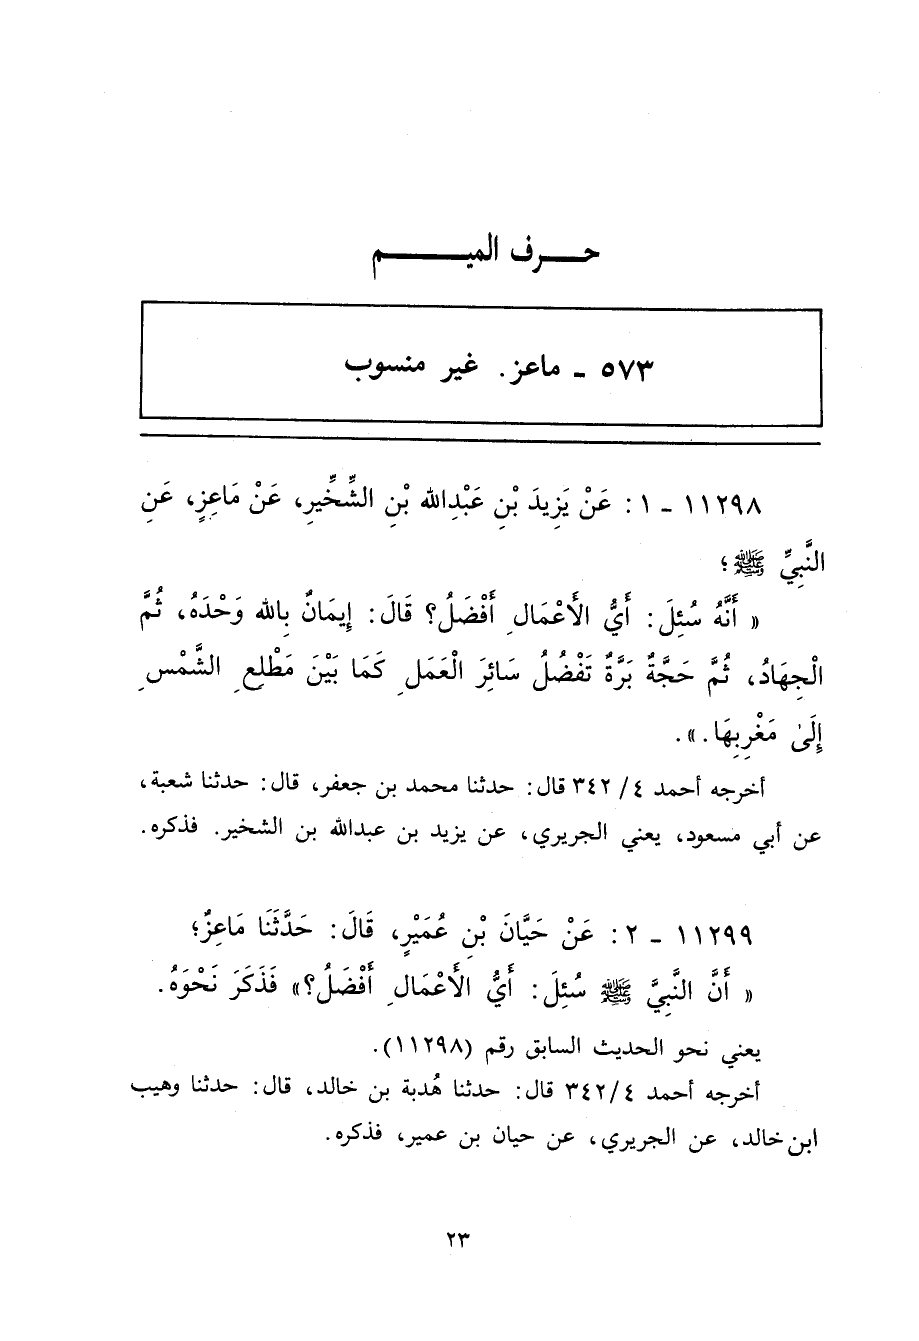 حـــرف الميـــــــم
٥٧٣ - ماعز. غير منسوب
١١٢٩٨ - ١ : عَنْ يَزِيدَ بْنِ عَبْدِاللهِ بْنِ الشِّخِّيرِ، عَنْ مَاعِزٍ، عَنِ
النَّبِيِّ ﷺ؛
« أَنَّهُ سُئِلَ: أَيُّ الأَعْمَالِ أَفْضَلُ؟ قَالَ: إِيمَانٌ بِاللهِ وَحْدَهُ، ثُمَّ
الْجِهَادُ، ثُمَّ حَجَّةٌ بَرَّةٌ تَفْضُلُ سَائِرَ الْعَمَلِ كَمَا بَيْنَ مَطْلِعِ الشَّمْسِ
إِلَىٰ مَغْرِبِهَا.».
أخرجه أحمد ٤/ ٣٤٢ قال: حدثنا محمد بن جعفر، قال: حدثنا شعبة،
عن أبي مسعود، يعني الجريري، عن يزيد بن عبدالله بن الشخير. فذكره.
١١٢٩٩ - ٢ : عَنْ حَيَّانَ بْنِ عُمَيْرٍ، قَالَ: حَدَّثَنَا مَاعِزٌ؛
« أَنَّ النَّبِيَّ ﷺ سُئِلَ: أَيُّ الأَعْمَالِ أَفْضَلُ؟» فَذَكَرَ نَحْوَهُ.
يعني نحو الحديث السابق رقم (١١٢٩٨).
أخرجه أحمد ٣٤٢/٤ قال: حدثنا هُدبة بن خالد، قال: حدثنا وهيب
ابن خالد، عن الجريري، عن حيان بن عمير، فذكره.
٢٣